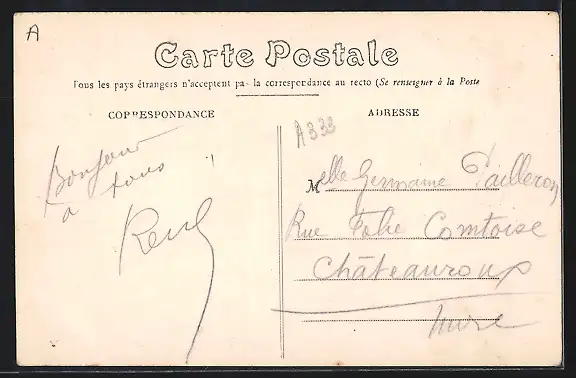 A
Carte Postale
Tous les pays étrangers n'acceptent pas la correspondance au recto (Se renseigner à la Poste
CORRESPONDANCE
ADRESSE
A333
Bonjour
à tous !
René
Melle Germaine Pailleron
Rue Folie Comtoise
Châteauroux
Indre